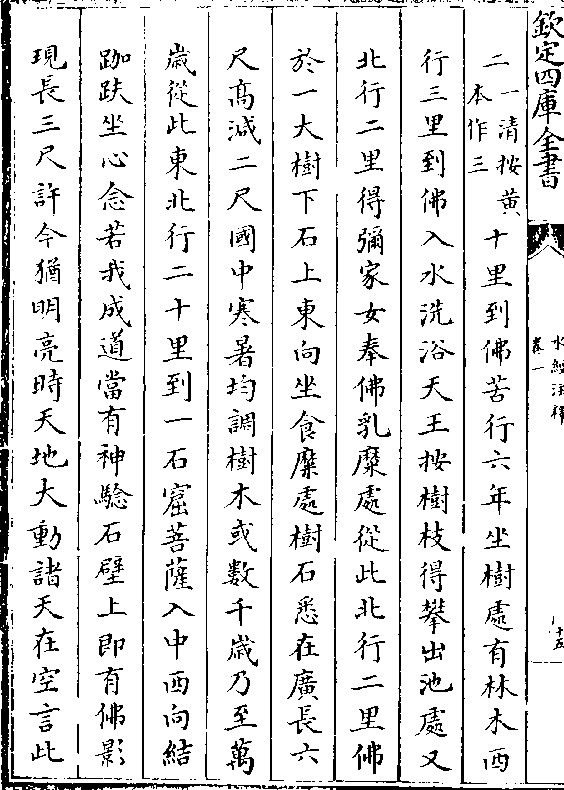 欽定四庫全書
水經注釋
卷一
十五
二一清按黄
本作三
十里到佛苦行六年坐樹處有林木西
行三里到佛入水洗浴天王按樹枝得攀出池處又
北行二里得彌家女奉佛乳糜處從此北行二里佛
於一大樹下石上東向坐食糜處樹石悉在廣長六
尺高減二尺國中寒暑均調樹木或數千歲乃至萬
歲從此東北行二十里到一石窟菩薩入中西向結
跏趺坐心念若我成道當有神驗石壁上即有佛影
現長三尺許今猶明亮時天地大動諸天在空言此